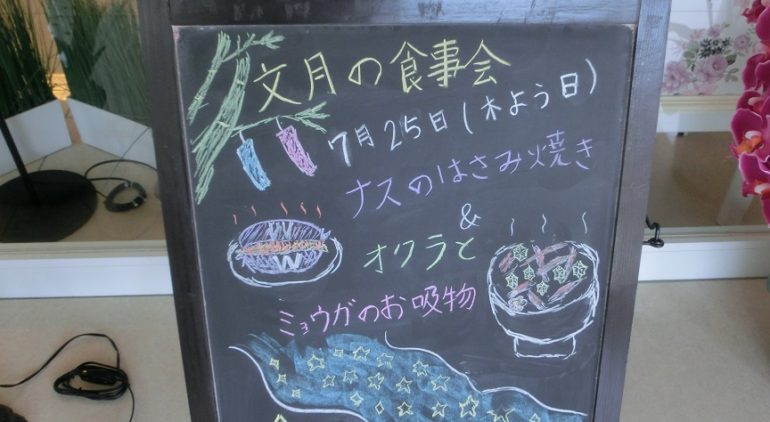 文月の食事会
7月25日(木よう日)
ナスのはさみ焼き
&
オクラと
ミョウガのお吸物